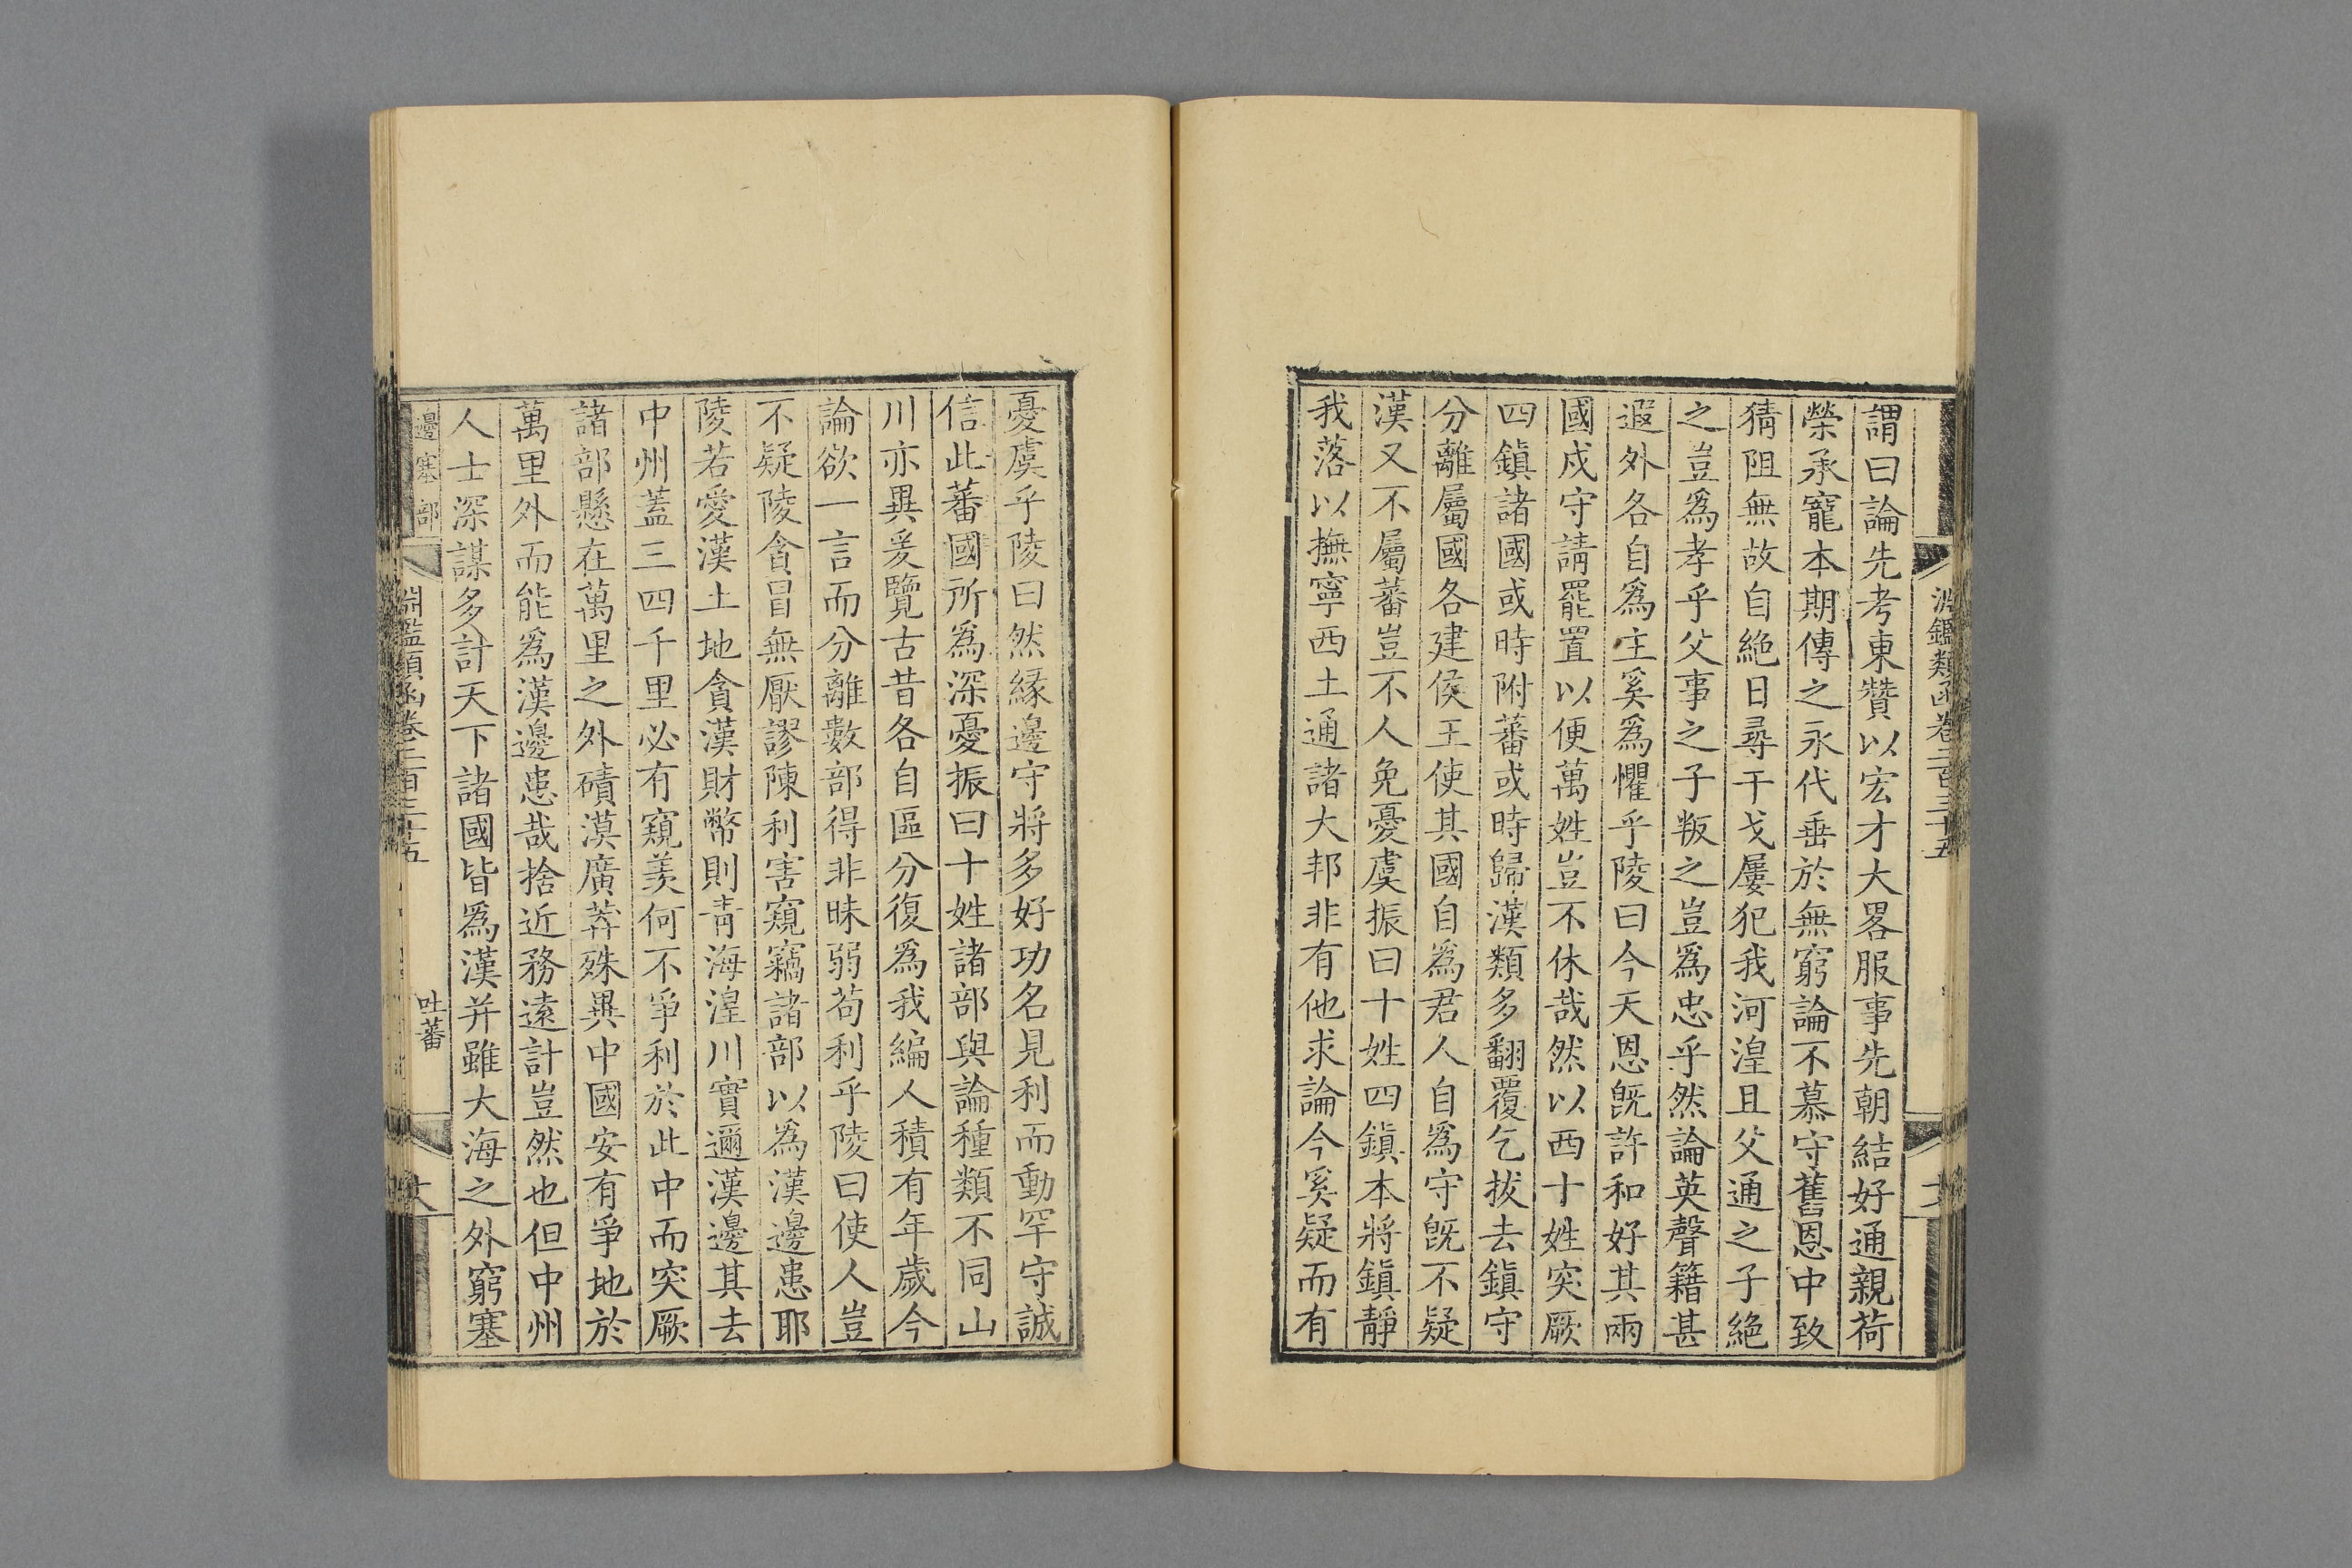 淵鑑類函卷二百三十五
謂曰論先考東贊以宏才大畧服事先朝結好通親荷
榮承寵本期傳之永代垂於無窮論不慕守舊恩中致
猜阻無故自絶日尋干戈屢犯我河湟且父通之子絶
之豈爲孝乎父事之子叛之豈爲忠乎然論英聲籍甚
遐外各自爲主奚爲懼乎陵曰今天恩旣許和好其兩
國戍守請罷置以便萬姓豈不休哉然以西十姓突厥
四鎮諸國或時附蕃或時歸漢類多翻覆乞拔去鎮守
分離屬國各建侯王使其國自爲君人自爲守旣不疑
漢又不屬蕃豈不人免憂虞振曰十姓四鎮本將鎮靜
我落以撫寧西土通諸大邦非有他求論今奚疑而有
憂虞乎陵曰然緣邊守將多好功名見利而動罕守誠
信此蕃國所爲深憂振曰十姓諸部與論種類不同山
川亦異爰覽古昔各自區分復爲我編人積有年歲今
論欲一言而分離數部得非昧弱苟利乎陵曰使人豈
不疑陵貪冒無厭謬陳利害窺竊諸部以爲漢邊患耶
陵若愛漢土地貪漢財幣則青海湟川實邇漢邊其去
中州蓋三四千里必有窺羨何不爭利於此中而突厥
諸部懸在萬里之外磧漠廣莽殊異中國安有爭地於
萬里外而能爲漢邊患哉捨近務遠計豈然也但中州
人士深謀多計天下諸國皆爲漢并雖大海之外窮塞
邊塞部
淵鑑類函卷二百三十五
吐蕃